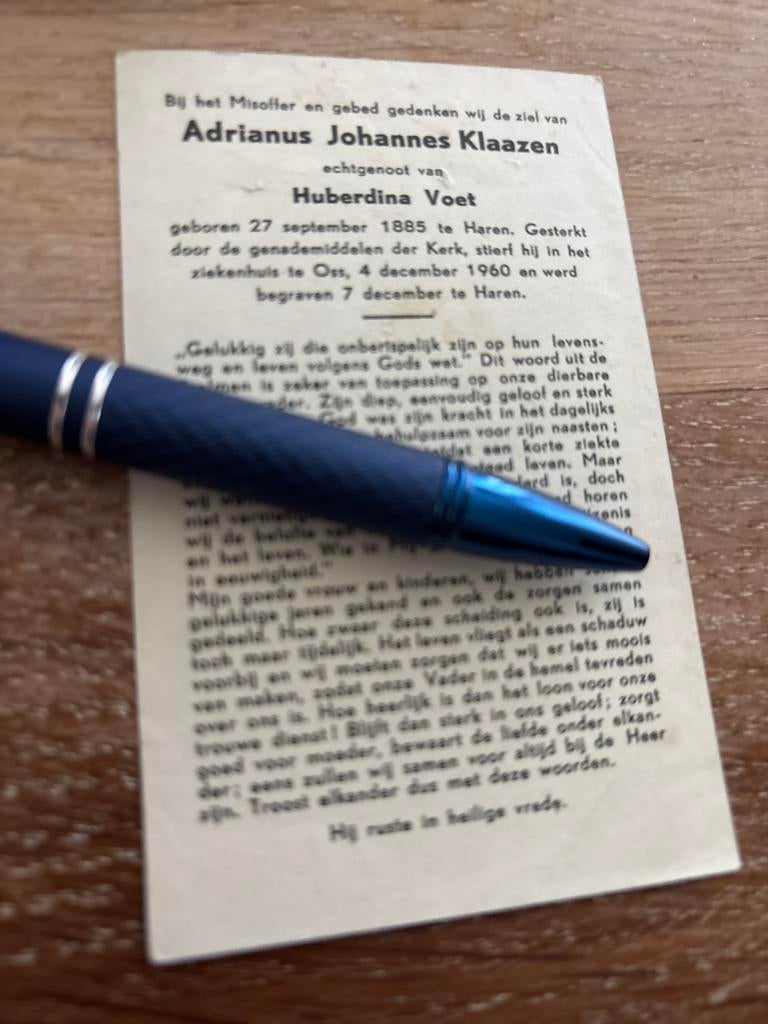 Bij het Misoffer en gebed gedenken wij de ziel van
Adrianus Johannes Klaazen
echtgenoot van
Huberdina Voet
geboren 27 september 1885 te Haren. Gesterkt
door de genademiddelen der Kerk, stierf hij in het
ziekenhuis te Oss, 4 december 1960 en werd
begraven 7 december te Haren.
„Gelukkig zij die onberispelijk zijn op hun levens-
weg en leven volgens Gods wet." Dit woord uit de
is zeker van toepassing op onze dierbare
Zijn diep, eenvoudig geloof en sterk
God was zijn kracht in het dagelijks
behulpzaam voor zijn naasten;
een korte ziekte
leven. Maar
is, doch
wij horen
niet
wij de belofte
en het leven. Wie in
in eeuwigheid."
Mijn goede vrouw en kinderen, wij hebben
gelukkige jaren gekend en ook de zorgen samen
gedeeld. Hoe zwaar deze scheiding ook is, zij is
toch maar tijdelijk. Het leven vliegt als een schaduw
voorbij en wij moeten zorgen dat wij er iets moois
van maken, zodat onze Vader in de hemel tevreden
over ons is. Hoe heerlijk is dan het loon voor onze
trouwe dienst! Blijft dan sterk in ons geloof; zorgt
goed voor moeder, bewaart de liefde onder elkan-
der; eens zullen wij samen voor altijd bij de Heer
zijn. Troost elkander dus met deze woorden.
Hij ruste in heilige vrede.